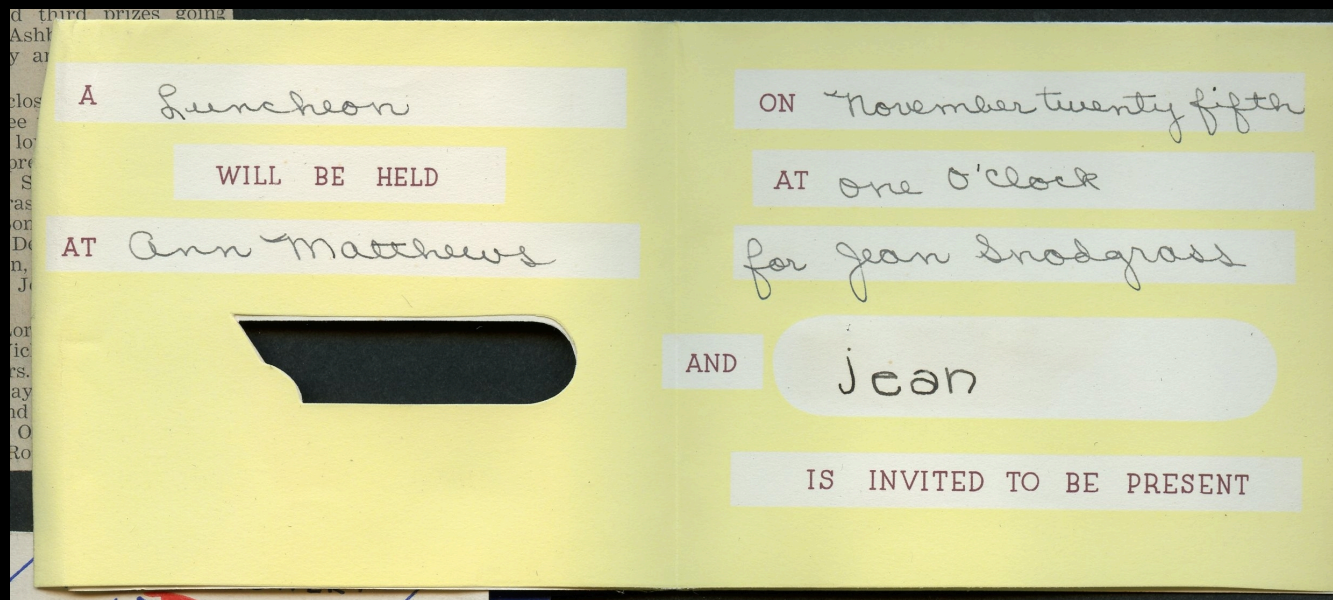 d third prizes going
Ashb
y an
A Luncheon
WILL BE HELD
AT Ann Matthews
ON November twenty fifth
AT one O'Clock
for Jean Snodgrass
AND jean
IS INVITED TO BE PRESENT